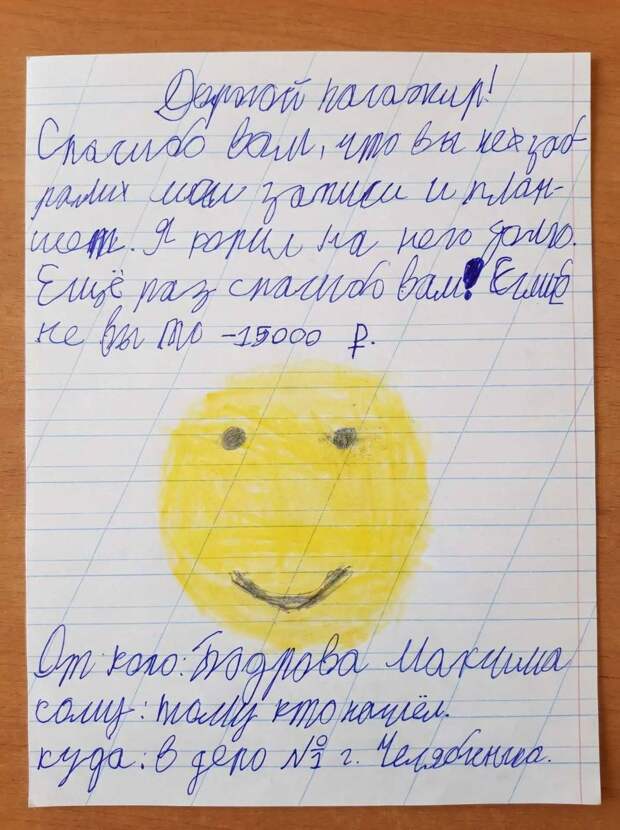 Дорогой пасажир!
Спасибо вам, что вы не заб-
рали мои записи и план-
шет. Я копил на него долго.
Ещё раз спасибо вам! Еслиб
не вы то -15000 ₽.
От кого: Бодрова Максима
кому: тому кто нашёл.
куда: в депо №1 г. Челябинска.